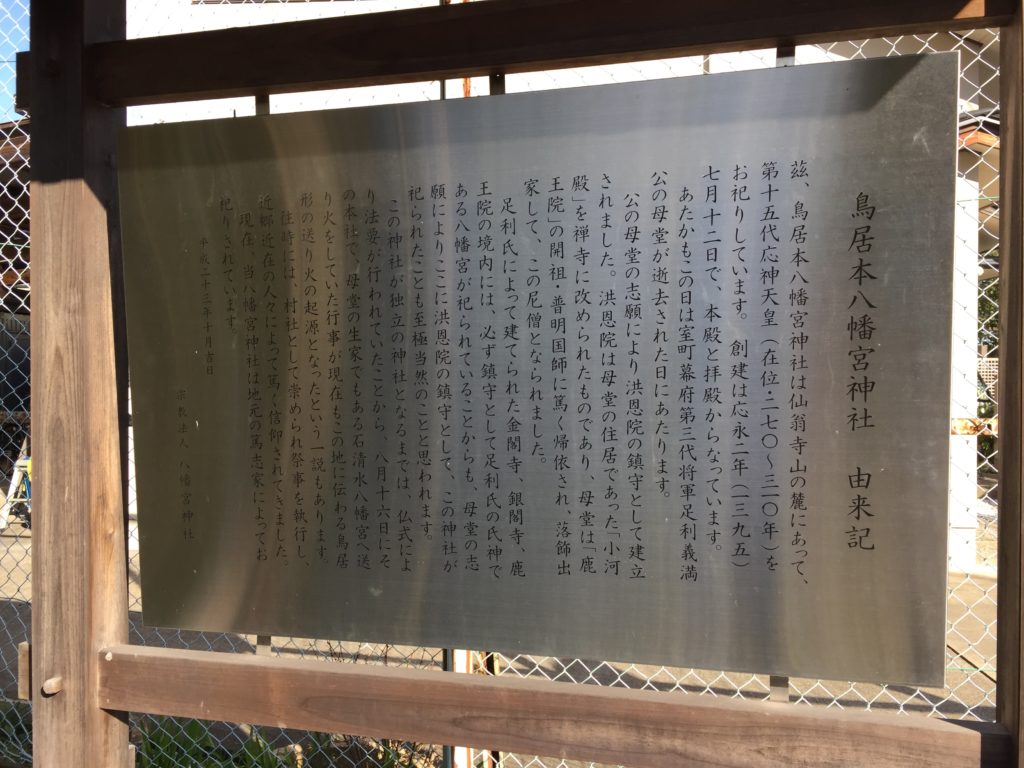 鳥居本八幡宮神社 由来記
茲、鳥居本八幡宮神社は仙翁寺山の麓にあって、
第十五代応神天皇（在位・二七〇～三一〇年）を
お祀りしています。創建は応永二年（一三九五）
七月十二日で、本殿と拝殿からなっています。
あたかもこの日は室町幕府第三代将軍足利義満
公の母堂が逝去された日にあたります。
公の母堂の志願により洪恩院の鎮守として建立
されました。洪恩院は母堂の住居であった「小河
殿」を禅寺に改められたものであり、母堂は「鹿
王院の開祖・普明国師に篤く帰依され、落飾出
家して、この尼僧となられました。
足利氏によって建てられた金閣寺、銀閣寺、鹿
王院の境内には、必ず鎮守として足利氏の氏神で
ある八幡宮が祀られていることからも、母堂の志
願によりここに洪恩院の鎮守として、この神社が
祀られたことも至極当然のことと思われます。
この神社が独立の神社となるまでは、仏式によ
り法要が行われていたことから、八月十六日にそ
の本社で、母堂の生家でもある石清水八幡宮へ送
り火をしていた行事が現在もこの地に伝わる鳥居
形の送り火の起源となったという一説もあります。
往時には、村社として崇められ祭事を執行し、
近郷近在の人々によって篤く信仰されてきました。
現在、当八幡宮神社は地元の篤志家によってお
祀りされています。
平成二十三年十月吉日
宗教法人 八幡宮神社